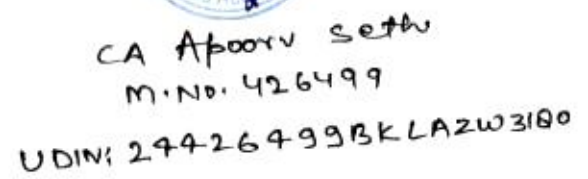 CA Apoorv Sethi
M.No. 426499
UDIN: 24426499BKLAZW3180